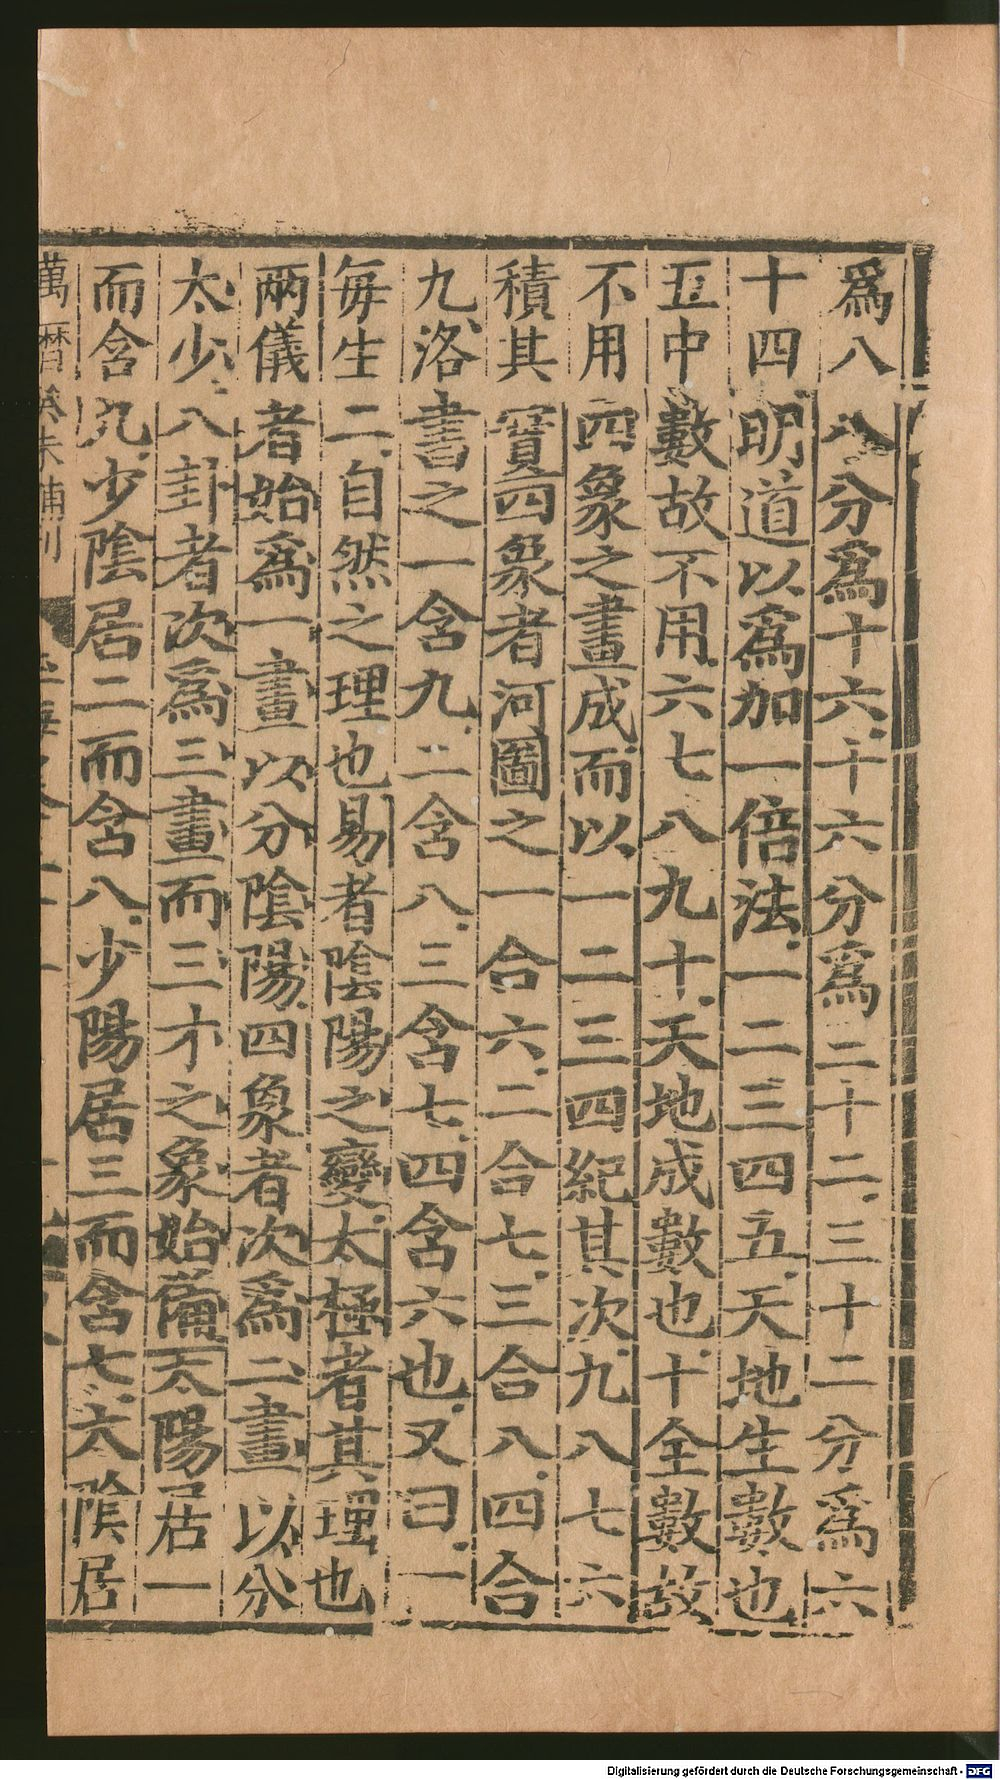 爲八八分爲十六十六分爲三十二三十二分爲六
十四明道以爲加一倍法一二三四五天地生數也
五中數故不用六七八九十天地成數也十全數故
不用四象之畫成而以一二三四紀其次九八七六
積其實四象者河圖之一合六二合七三合八四合
九洛書之一含九二含八三含七四含六也又曰一
每生二自然之理也易者陰陽之變太極者其理也
兩儀者始爲一畫以分陰陽四象者次爲二畫以分
太少八卦者次爲三畫而三才之象始備太陽居一
而含九少陰居二而含八少陽居三而含七太陰居
萬曆癸未補刊
Digitalisierung gefördert durch die Deutsche Forschungsgemeinschaft - DFG